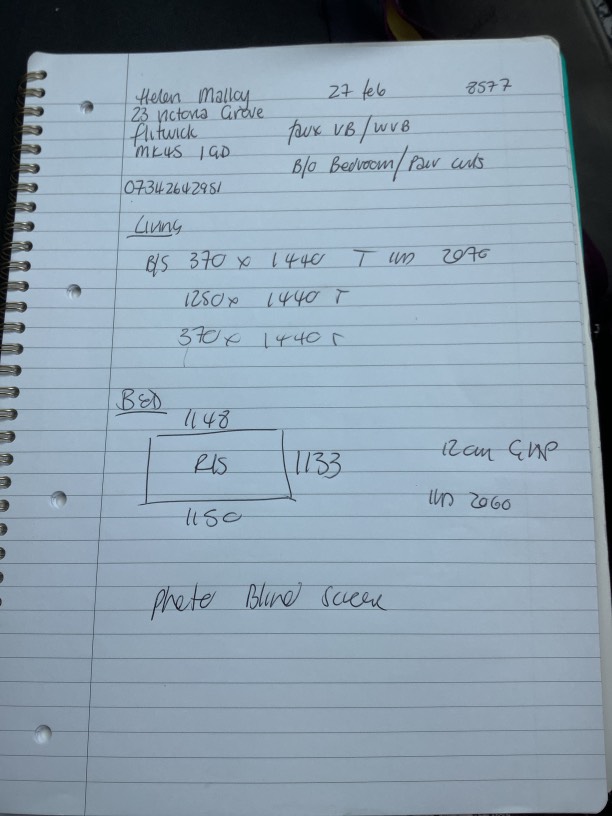 Helen Malloy 27 feb 8577
23 Victoria Grove
flitwick faux VB/WVB
MK45 1GD B/O Bedroom/Pair curts
07342642951
Living
B/S 370 x 1440 T UD 2070
1250 x 1440 T
370 x 1440 T
BED
1148
R/S 1133 12cm GAP
1150 UD 2060
photo Blind Screen